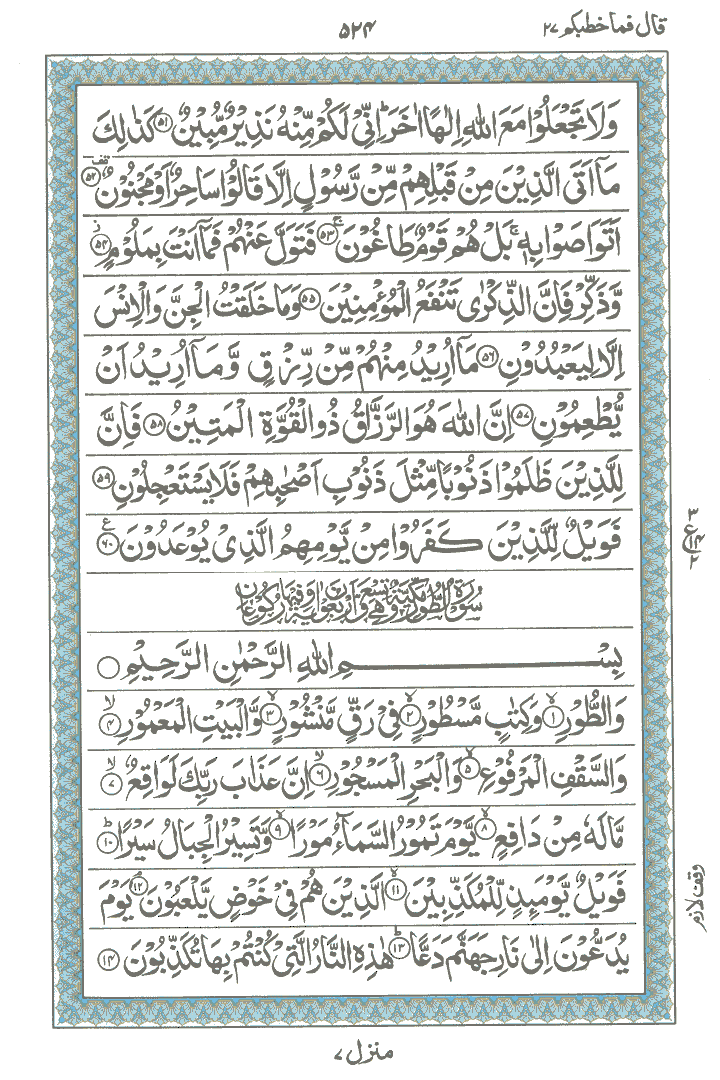 قال فما خطبکم ۲۷
۵۲۴
وَلَا تَجْعَلُوْا مَعَ اللّٰهِ اِلٰهًا اٰخَرَ ؕ اِنِّیْ لَكُمْ مِّنْهُ نَذِیْرٌ مُّبِیْنٌ ۵۱ۚ كَذٰلِكَ
مَاۤ اَتَی الَّذِیْنَ مِنْ قَبْلِهِمْ مِّنْ رَّسُوْلٍ اِلَّا قَالُوْا سَاحِرٌ اَوْ مَجْنُوْنٌ ۵۲ قف
اَتَوَاصَوْا بِهٖ ۚ بَلْ هُمْ قَوْمٌ طَاغُوْنَ ۵۳ۚ فَتَوَلَّ عَنْهُمْ فَمَاۤ اَنْتَ بِمَلُوْمٍ ۵۴ ز
وَّذَكِّرْ فَاِنَّ الذِّكْرٰی تَنْفَعُ الْمُؤْمِنِیْنَ ۵۵ وَمَا خَلَقْتُ الْجِنَّ وَالْاِنْسَ
اِلَّا لِیَعْبُدُوْنِ ۵۶ مَاۤ اُرِیْدُ مِنْهُمْ مِّنْ رِّزْقٍ وَّمَاۤ اُرِیْدُ اَنْ
یُّطْعِمُوْنِ ۵۷ اِنَّ اللّٰهَ هُوَ الرَّزَّاقُ ذُو الْقُوَّةِ الْمَتِیْنُ ۵۸ فَاِنَّ
لِلَّذِیْنَ ظَلَمُوْا ذَنُوْبًا مِّثْلَ ذَنُوْبِ اَصْحٰبِهِمْ فَلَا یَسْتَعْجِلُوْنِ ۵۹
فَوَیْلٌ لِّلَّذِیْنَ كَفَرُوْا مِنْ یَّوْمِهِمُ الَّذِیْ یُوْعَدُوْنَ ۶۰ ع
۳
ع ۴
۲
سُوْرَةُ الطُّوْرِ مَكِّیَّةٌ وَّهِیَ تِسْعٌ وَّاَرْبَعُوْنَ اٰیَةً وَّفِیْهَا رُكُوْعَانِ
بِسْمِ اللّٰهِ الرَّحْمٰنِ الرَّحِیْمِ
وَالطُّوْرِ ۱ۙ وَكِتٰبٍ مَّسْطُوْرٍ ۲ۙ فِیْ رَقٍّ مَّنْشُوْرٍ ۳ۙ وَّالْبَیْتِ الْمَعْمُوْرِ ۴ۙ
وَالسَّقْفِ الْمَرْفُوْعِ ۵ۙ وَالْبَحْرِ الْمَسْجُوْرِ ۶ۙ اِنَّ عَذَابَ رَبِّكَ لَوَاقِعٌ ۷ۙ
مَّا لَهٗ مِنْ دَافِعٍ ۸ۙ یَّوْمَ تَمُوْرُ السَّمَآءُ مَوْرًا ۹ۙ وَّتَسِیْرُ الْجِبَالُ سَیْرًا ۱۰ؕ
فَوَیْلٌ یَّوْمَىِٕذٍ لِّلْمُكَذِّبِیْنَ ۱۱ۙ الَّذِیْنَ هُمْ فِیْ خَوْضٍ یَّلْعَبُوْنَ ۱۲ۘ یَوْمَ
وقف لازم
یُدَعُّوْنَ اِلٰی نَارِ جَهَنَّمَ دَعًّا ۱۳ؕ هٰذِهِ النَّارُ الَّتِیْ كُنْتُمْ بِهَا تُكَذِّبُوْنَ ۱۴
منزل ۷